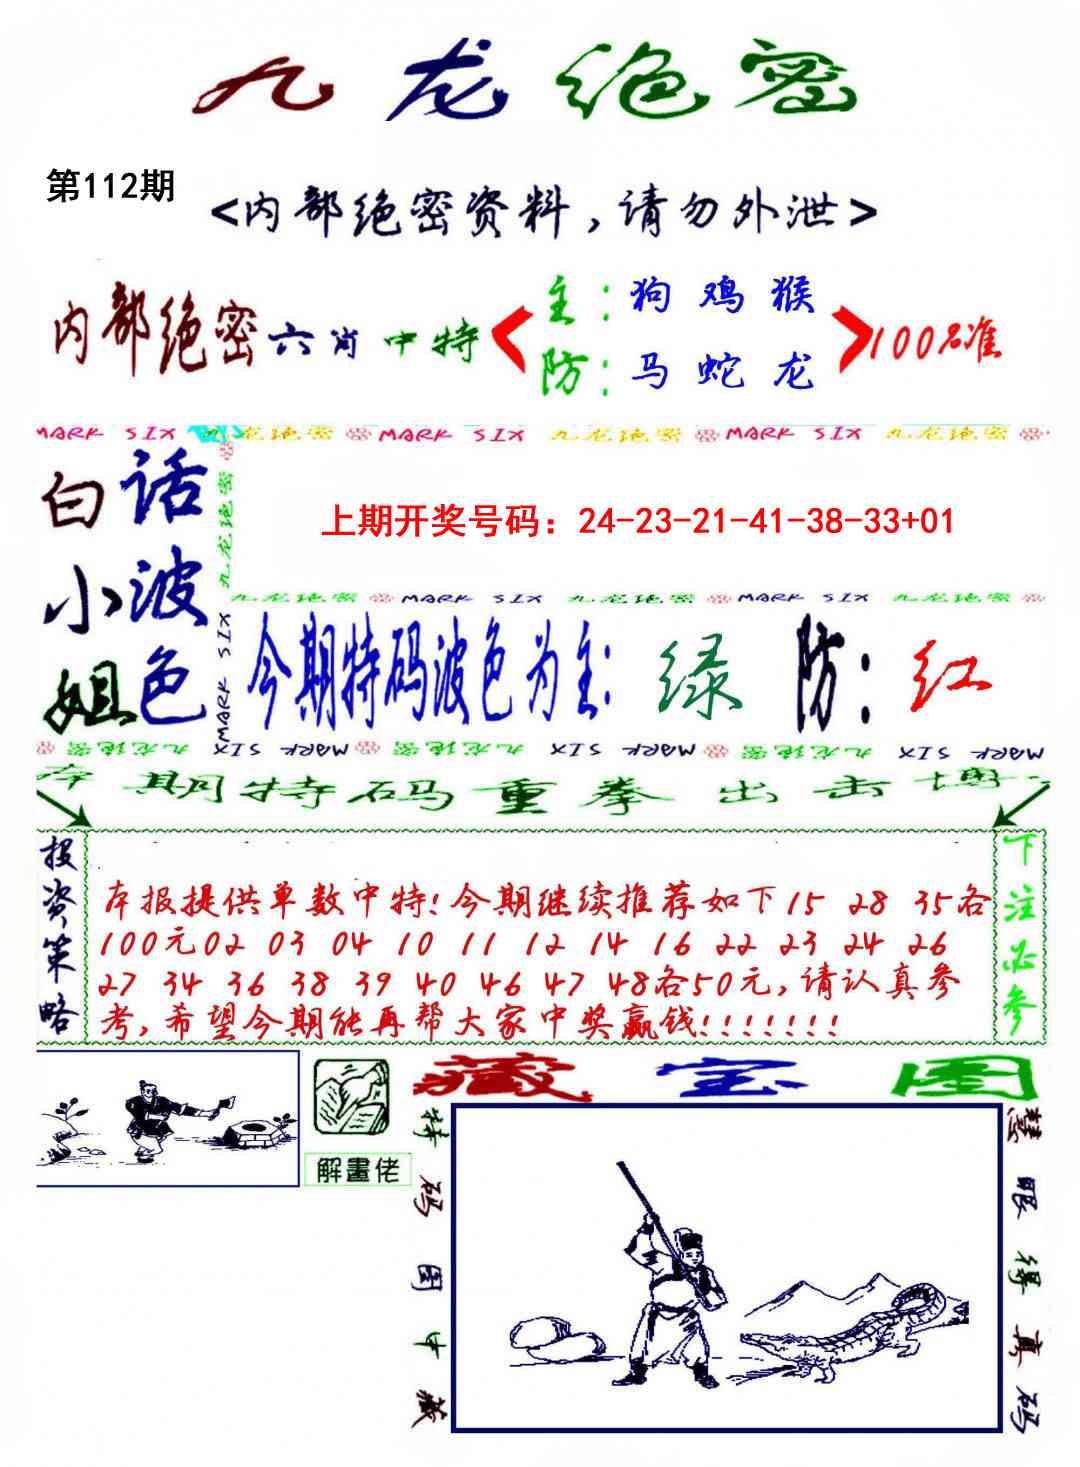 九龙绝密
第112期
<内部绝密资料,请勿外泄>
内部绝密六肖中特
主:狗 鸡 猴
防:马 蛇 龙
100%准
MARK SIX 九龙绝密 MARK SIX 九龙绝密 MARK SIX 九龙绝密
白小姐
话波色
九龙绝密 MARK SIX
上期开奖号码：24-23-21-41-38-33+01
九龙绝密 MARK SIX 九龙绝密 MARK SIX 九龙绝密
今期特码波色为主:绿 防:红
九龙绝密 MARK SIX 九龙绝密 MARK SIX 九龙绝密 MARK SIX
本期特码重拳出击博
投资策略
本报提供单数中特!今期继续推荐如下15 28 35各
100元02 03 04 10 11 12 14 16 22 23 24 26
27 34 36 38 39 40 46 47 48各50元,请认真参
考,希望今期能再帮大家中奖赢钱!!!!!!!
下注必参
解畫佬
藏宝图
特码图中藏
慧眼得真码